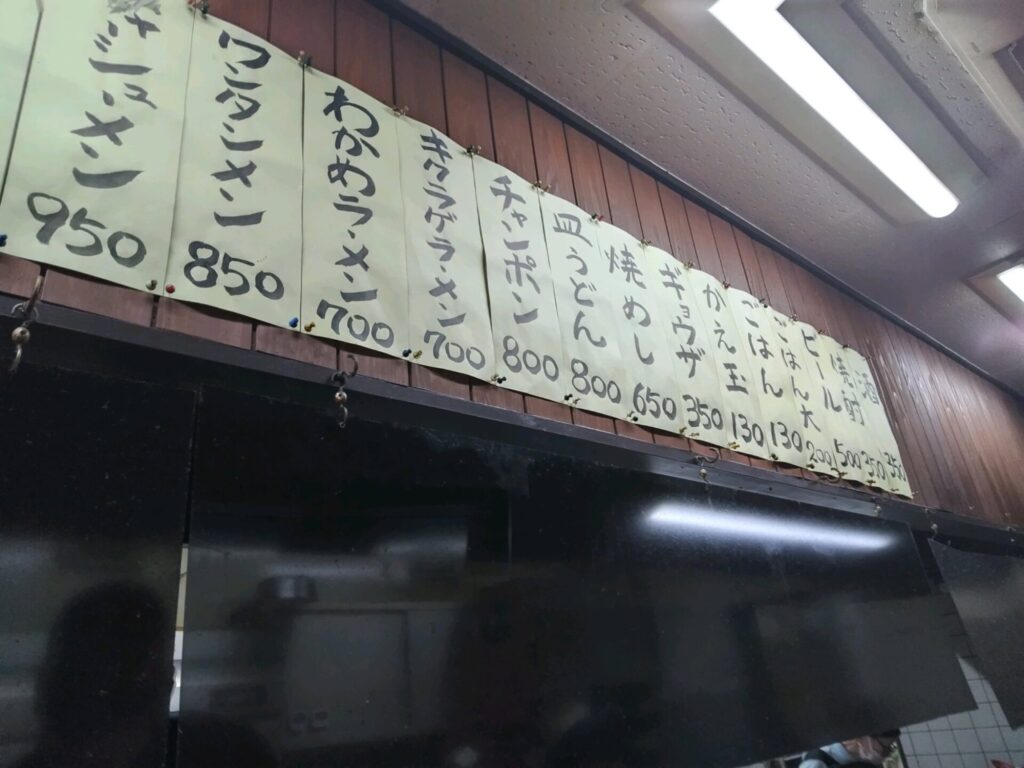 チャシューメン 950
ワンタンメン 850
わかめラーメン 700
キクラゲラーメン 700
チャンポン 800
皿うどん 800
焼めし 650
ギョウザ 350
かえ玉 130
ごはん 130
ごはん大 200
ビール 500
焼酎 350
酒 350